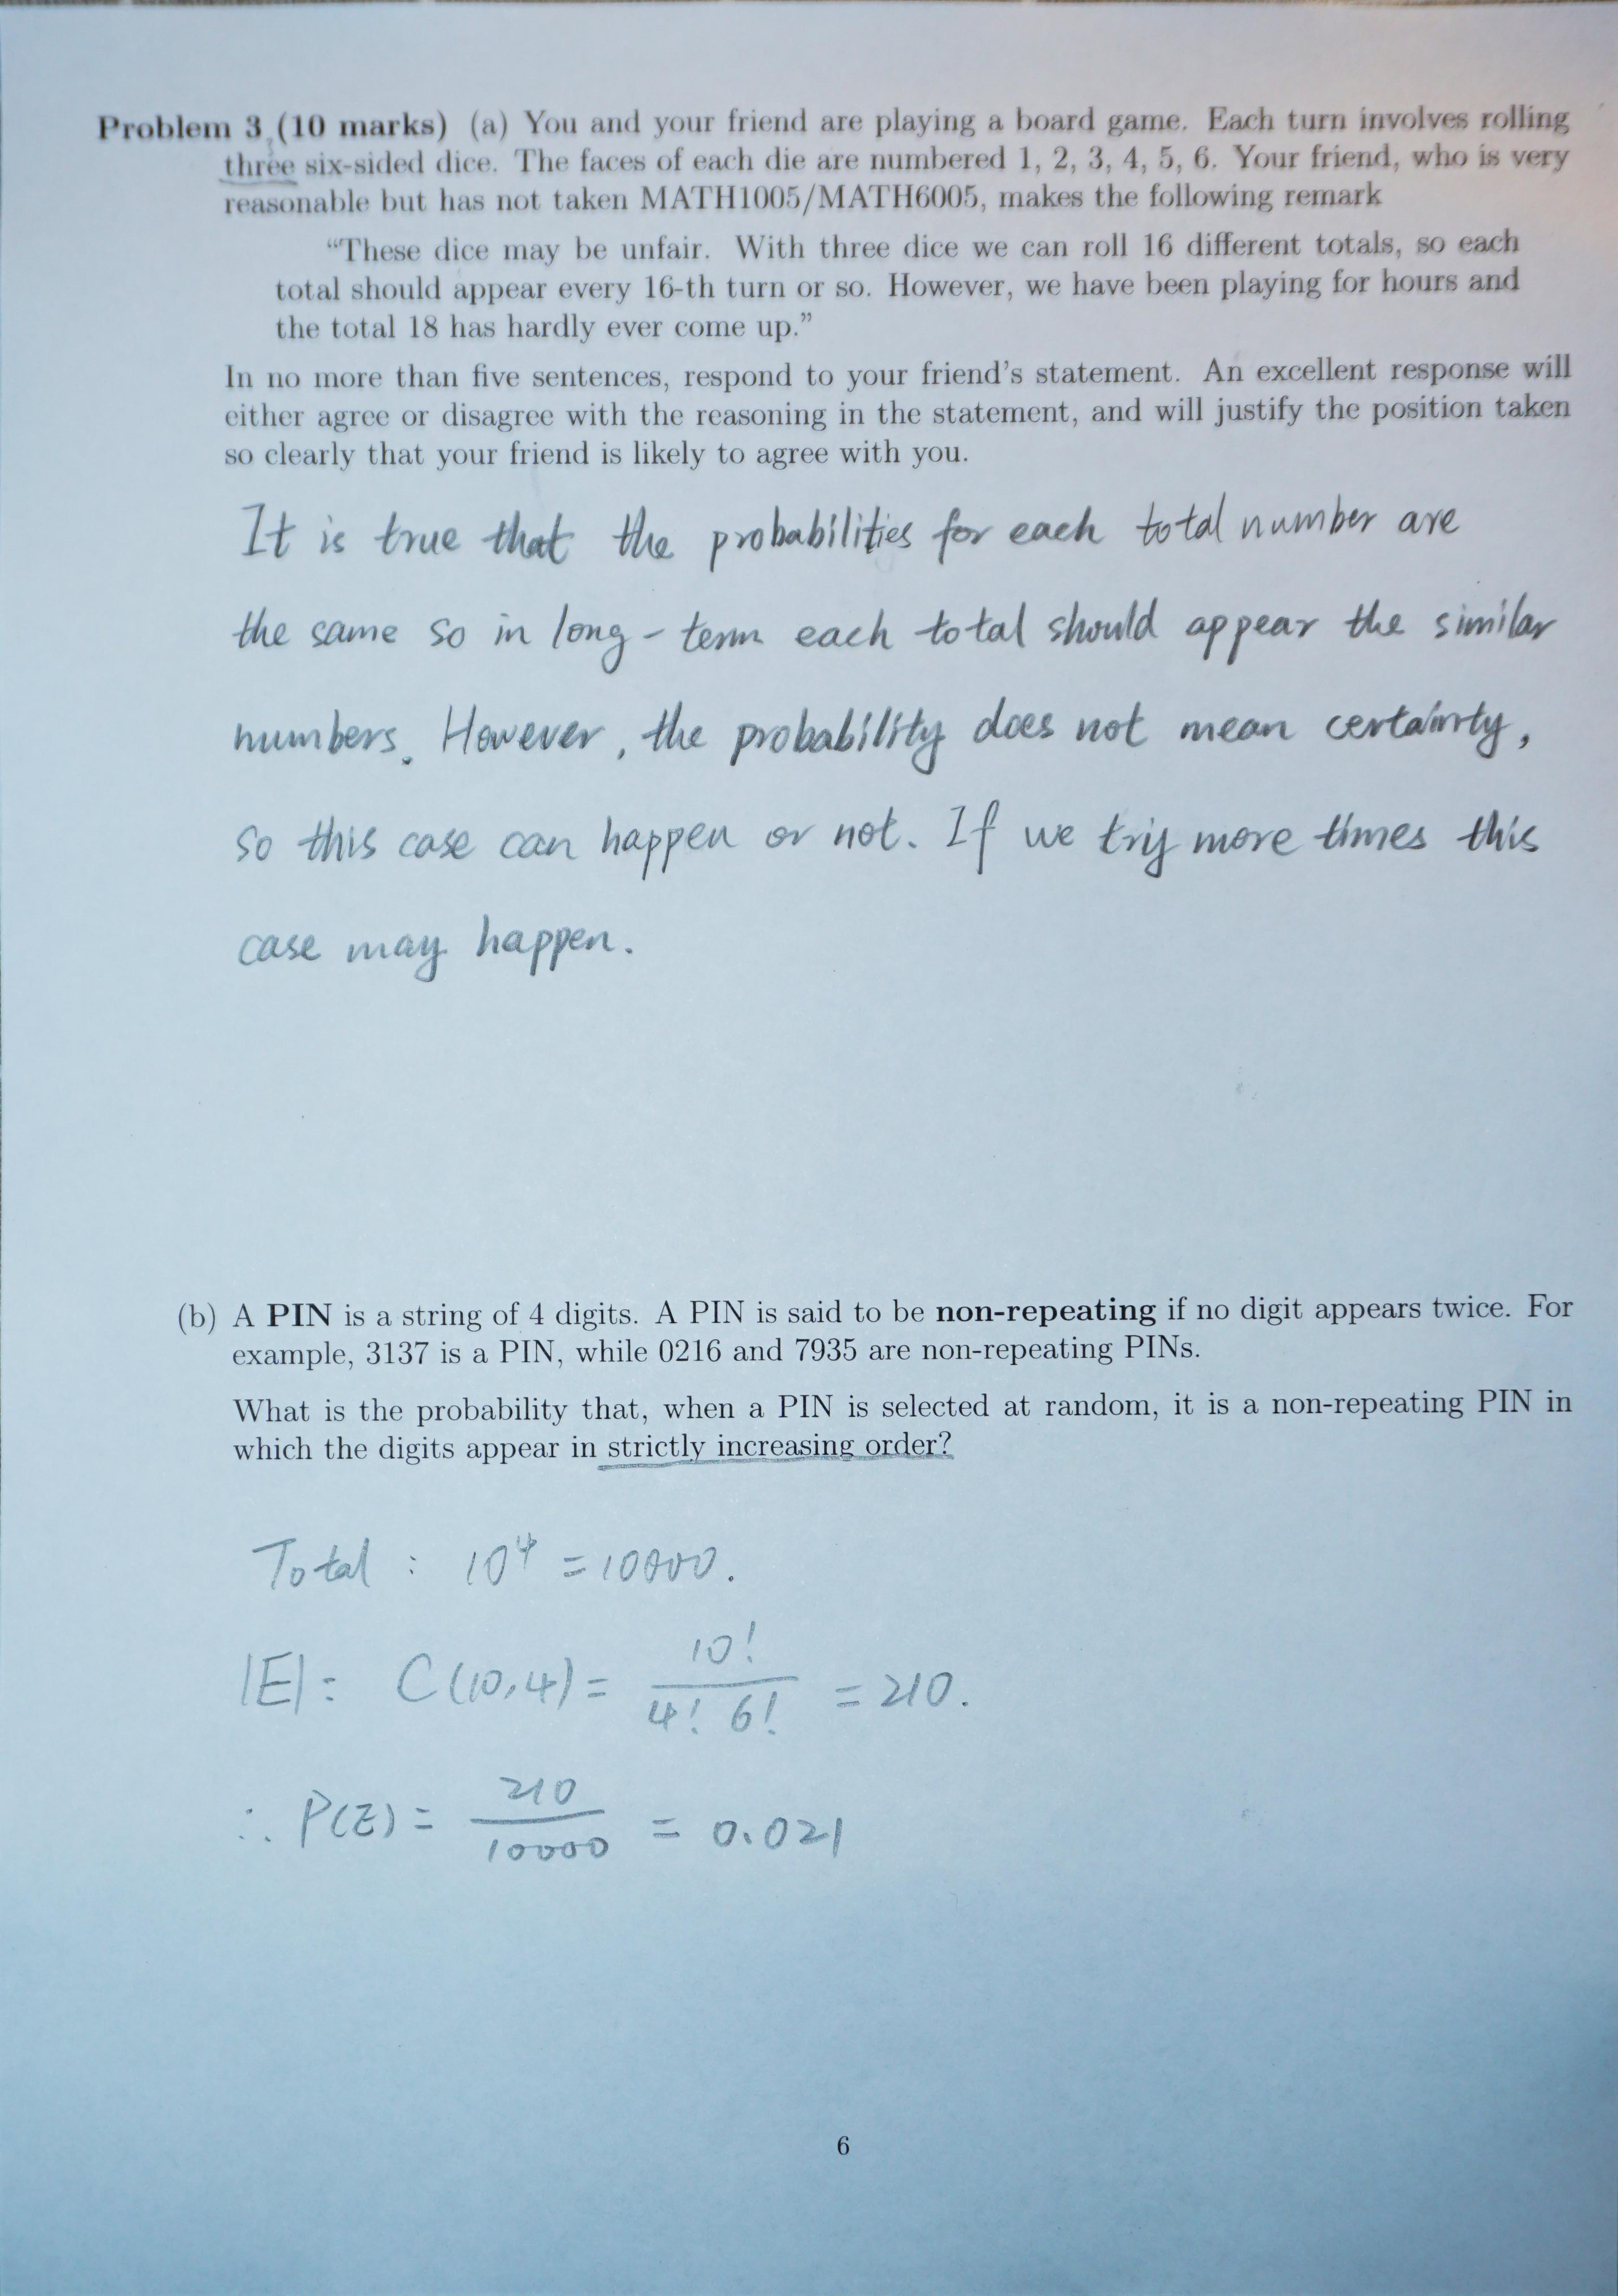 Problem 3 (10 marks) (a) You and your friend are playing a board game. Each turn involves rolling
three six-sided dice. The faces of each die are numbered 1, 2, 3, 4, 5, 6. Your friend, who is very
reasonable but has not taken MATH1005/MATH6005, makes the following remark
“These dice may be unfair. With three dice we can roll 16 different totals, so each
total should appear every 16-th turn or so. However, we have been playing for hours and
the total 18 has hardly ever come up.”
In no more than five sentences, respond to your friend’s statement. An excellent response will
either agree or disagree with the reasoning in the statement, and will justify the position taken
so clearly that your friend is likely to agree with you.
It is true that the probabilities for each total number are
the same so in long-term each total should appear the similar
numbers. However, the probability does not mean certainty,
so this case can happen or not. If we try more times this
case may happen.
(b) A PIN is a string of 4 digits. A PIN is said to be non-repeating if no digit appears twice. For
example, 3137 is a PIN, while 0216 and 7935 are non-repeating PINs.
What is the probability that, when a PIN is selected at random, it is a non-repeating PIN in
which the digits appear in strictly increasing order?
Total : 10⁴ = 10000.
|E| = C(10,4) = 10! / 4! 6! = 210.
∴ P(E) = 210 / 10000 = 0.021
6